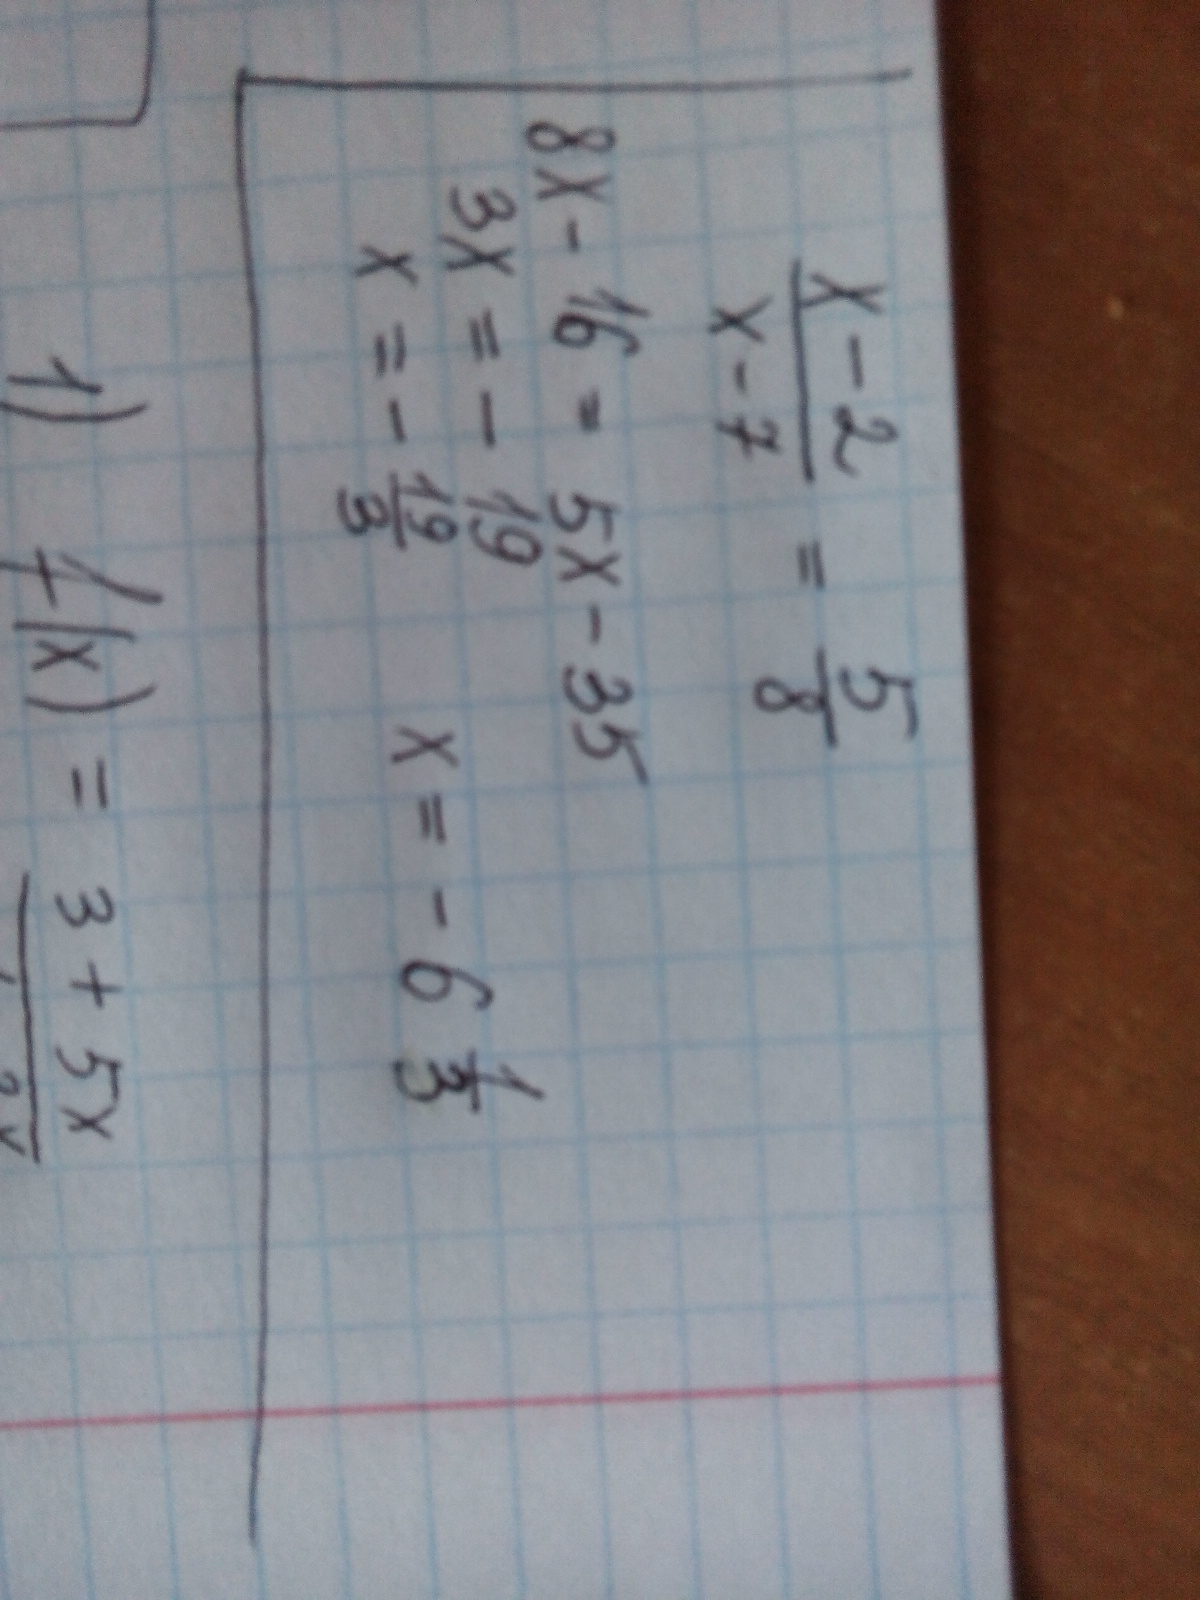 x-2/x-7 = 5/8
8x - 16 = 5x - 35
3x = - 19
x = - 19/3 x = - 6 1/3
1) f(x) = 3 + 5x